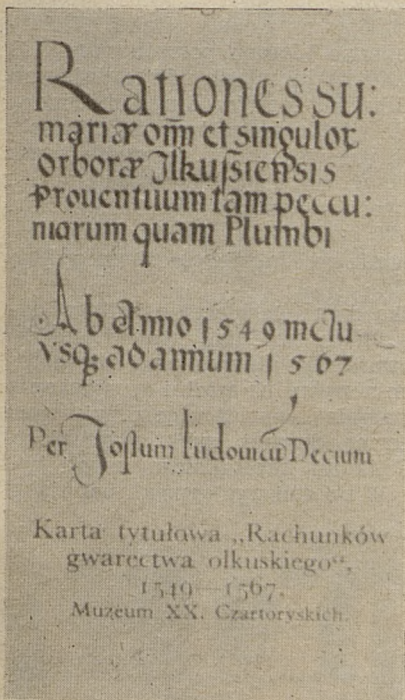 Rationes su:
mariæ om̄ et singuloꝝ
orboræ Ilkuſsiensis
prouentuum tam peccu:
niarum quam Plumbi
Ab Anno 1549 inclu
vsqꝫ ad annum 1567
Per Jostum Ludouicū Decium
Karta tytułowa „Rachunków
gwarectwa olkuskiego“,
1549—1567.
Muzeum XX. Czartoryskich.